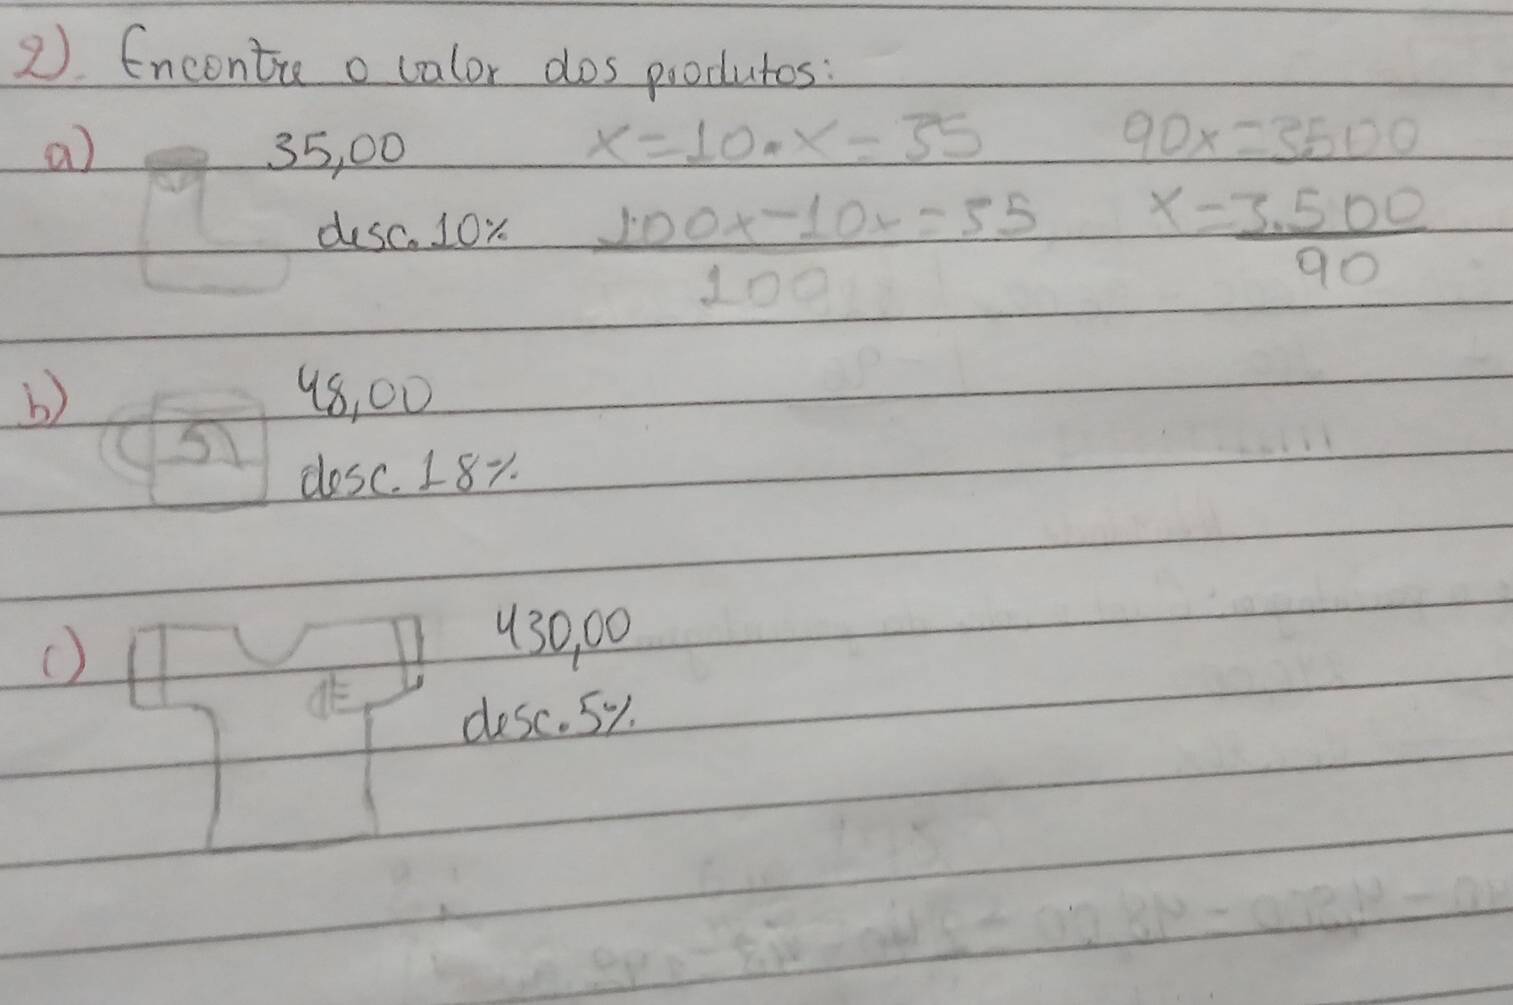 2). Encontre o valor dos produtos:
a) 35,00 x=10.x=35 90x=3500
desc. 10% 100x-10x=35 x=3.500
100 90
b) 48,00
desc. 18%
c) 430,00
desc. 5%